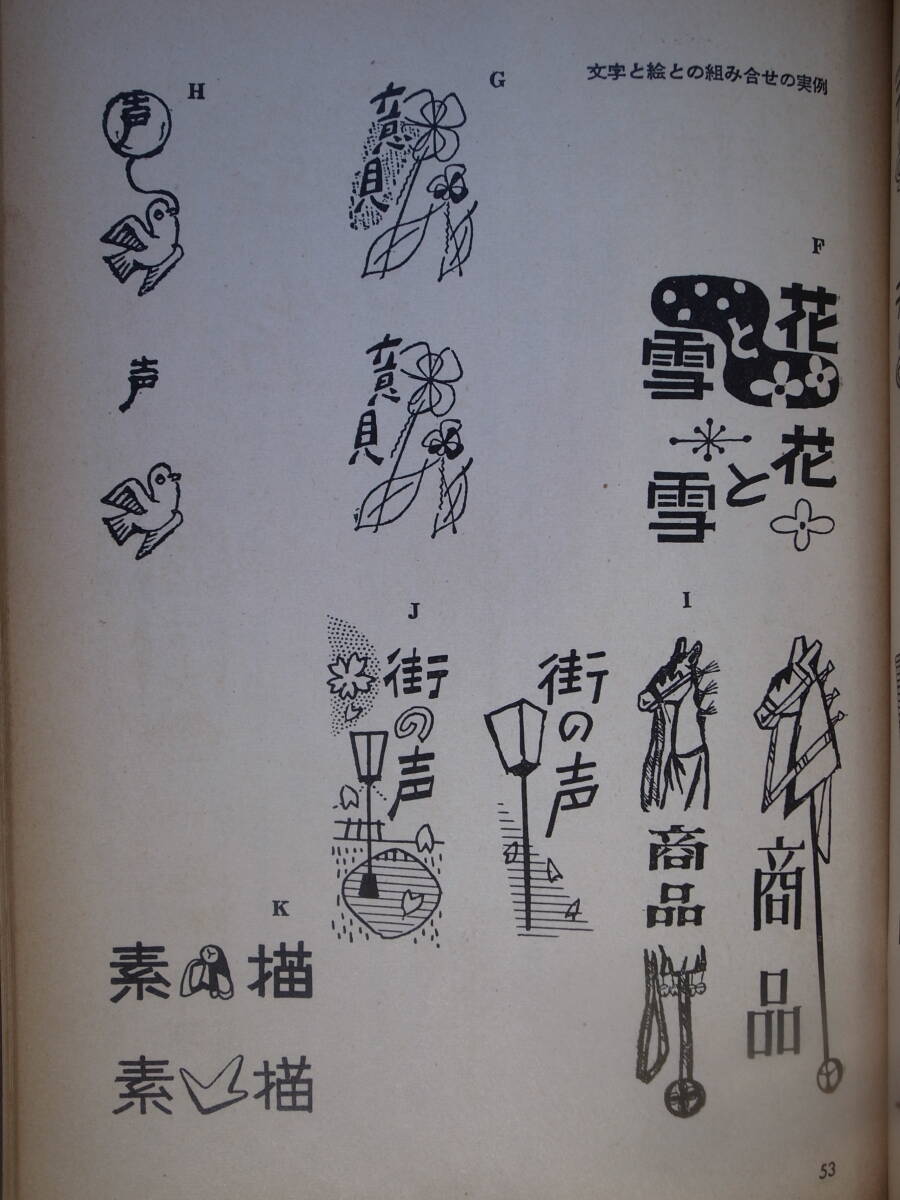 文字と絵との組み合せの実例
F
花
と
雪
花
と
雪
G
意見
意見
H
声
声
I
商品
商品
J
街の声
街の声
K
素描
素描
53